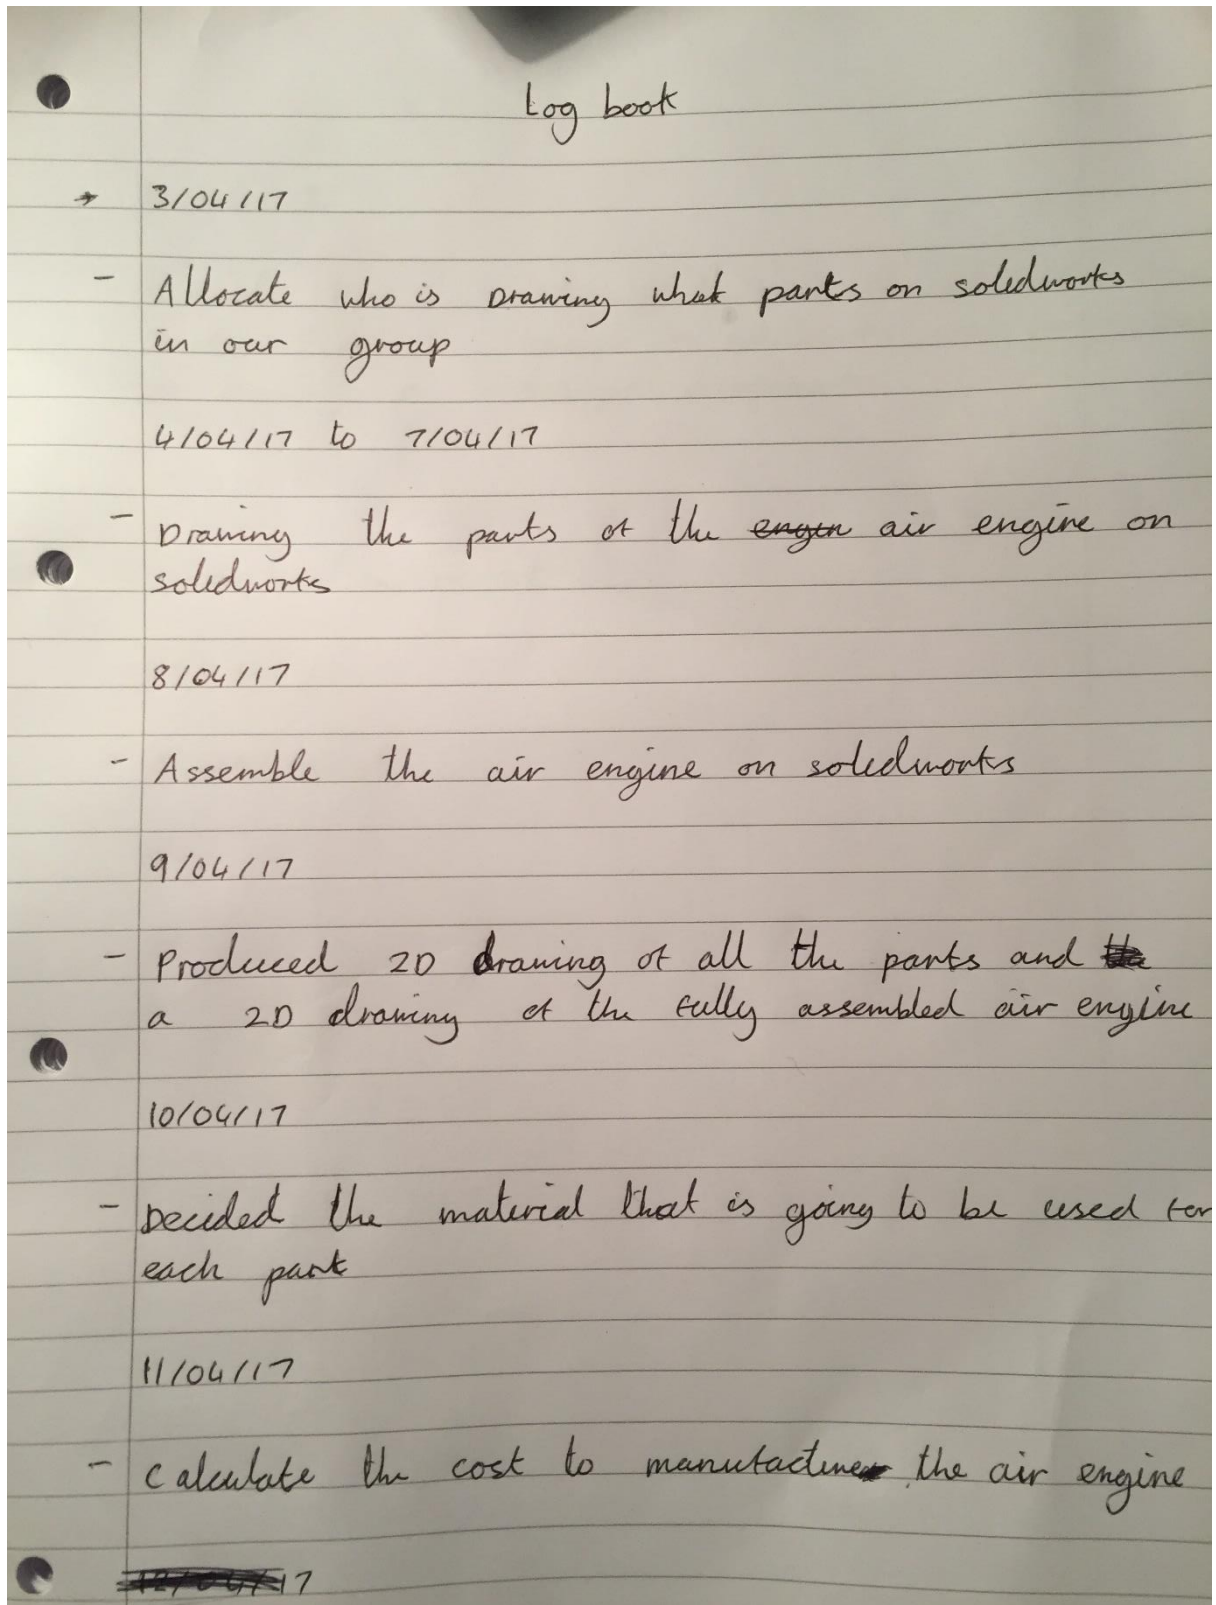 Log book
3/04/17
- Allocate who is Drawing what parts on soledworks
in our group
4/04/17 to 7/04/17
- Drawing the parts of the engin air engine on
soledworks
8/04/17
- Assemble the air engine on soledworks
9/04/17
- Produced 2D drawing of all the parts and
a 2D drawing of the fully assembled air engine
10/04/17
- Decided the material that is going to be used for
each part
11/04/17
- Calculate the cost to manufacture the air engine
12/04/17